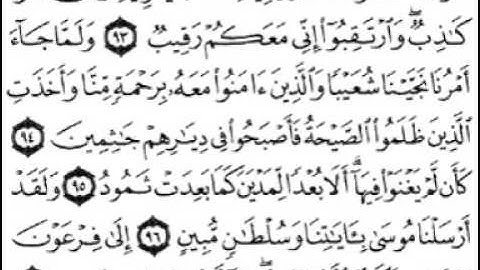 كَـٰذِبٌۭ ۖ وَٱرْتَقِبُوٓا۟ إِنِّى مَعَكُمْ رَقِيبٌۭ ٩٣ وَلَمَّا جَآءَ
أَمْرُنَا نَجَّيْنَا شُعَيْبًۭا وَٱلَّذِينَ ءَامَنُوا۟ مَعَهُۥ بِرَحْمَةٍۢ مِّنَّا وَأَخَذَتِ
ٱلَّذِينَ ظَلَمُوا۟ ٱلصَّيْحَةُ فَأَصْبَحُوا۟ فِى دِيَـٰرِهِمْ جَـٰثِمِينَ ٩٤
كَأَن لَّمْ يَغْنَوْا۟ فِيهَآ ۗ أَلَا بُعْدًۭا لِّمَدْيَنَ كَمَا بَعِدَتْ ثَمُودُ ٩٥ وَلَقَدْ
أَرْسَلْنَا مُوسَىٰ بِـَٔايَـٰتِنَا وَسُلْطَـٰنٍۢ مُّبِينٍ ٩٦ إِلَىٰ فِرْعَوْنَ